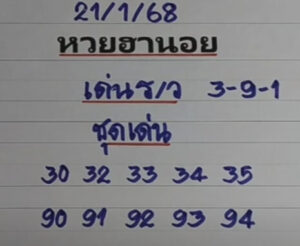 21/1/68
หวยฮานอย
เด่นร/ว 3-9-1
ชุดเด่น
30 32 33 34 35
90 91 92 93 94